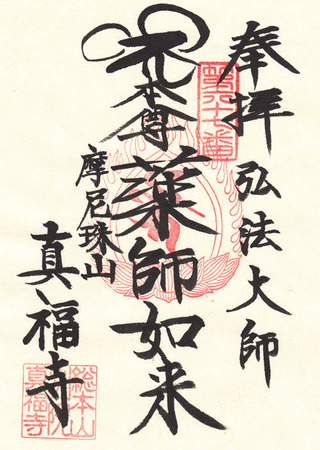 奉拝 弘法大師
本尊 薬師如来
摩尼珠山
真福寺
総本山
真福寺